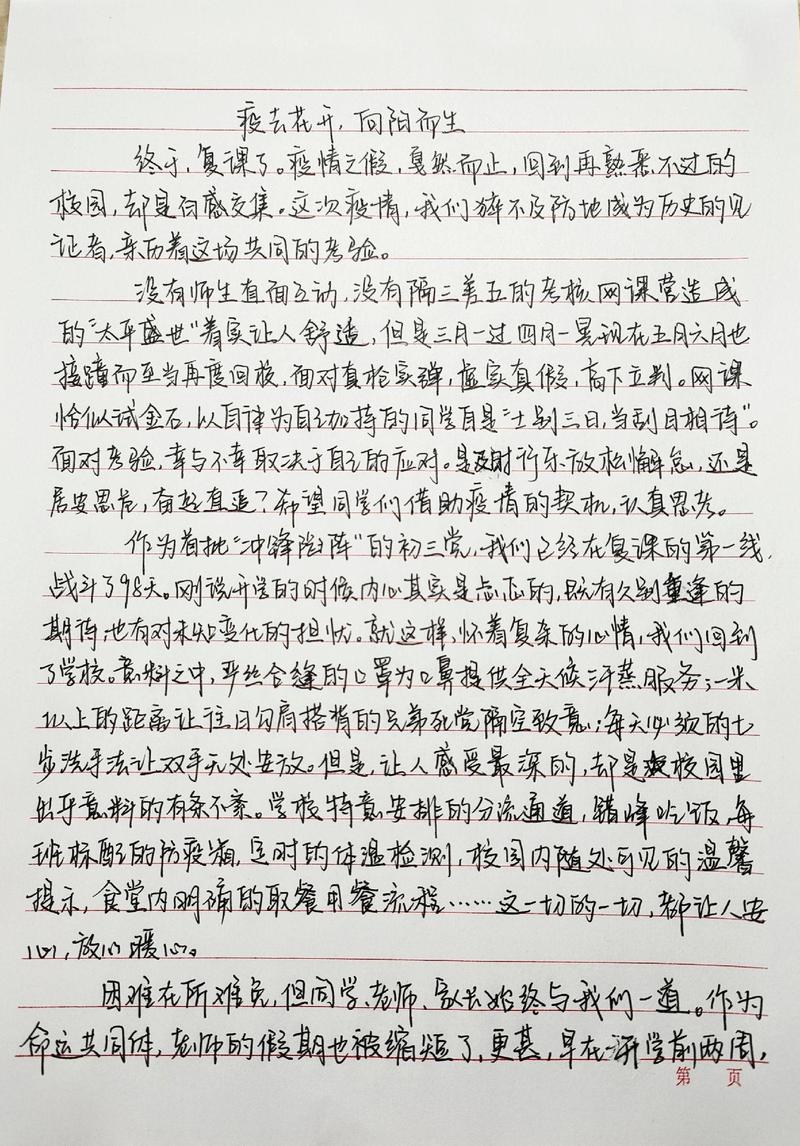 疫去花开，向阳而生
终于，复课了。疫情之假，戛然而止，回到再熟悉不过的
校园，却是百感交集。这次疫情，我们猝不及防地成为历史的见
证者，亲历着这场共同的考验。
没有师生直面互动，没有隔三差五的考核，网课营造成
的“太平盛世”着实让人舒适，但是三月一过四月一晃现在五月六月也
接踵而至当再度回校，面对真枪实弹，虚实真假，高下立判。网课
恰似试金石，以自律为自己加持的同学自是“士别三日，当刮目相待”。
面对考验，幸与不幸取决于自己的应对。是及时行乐放松懈怠，还是
居安思危，奋起直追？希望同学们借助疫情的契机，认真思考。
作为首批“冲锋陷阵”的初三党，我们已经在复课的第一线，
战斗了98天。刚说开学的时候内心其实是忐忑的，既有久别重逢的
期待，也有对未知变化的担忧。就这样，怀着复杂的心情，我们回到
了学校。意料之中，严丝合缝的口罩为口鼻提供全天候汗蒸服务；一米
以上的距离让往日勾肩搭背的兄弟死党隔空致意；每天必须的七
步洗手法让双手无处安放。但是，让人感受最深的，却是校园里
出乎意料的有条不紊。学校特意安排的分流通道，错峰吃饭，每
班标配的防疫箱，定时的体温检测，校园内随处可见的温馨
提示，食堂内明确的取餐用餐流程……这一切的一切，都让人安
心，放心暖心。
困难在所难免，但同学、老师、家长始终与我们一道。作为
命运共同体，老师的假期也被缩短了，更甚，早在开学前两周，
第 页